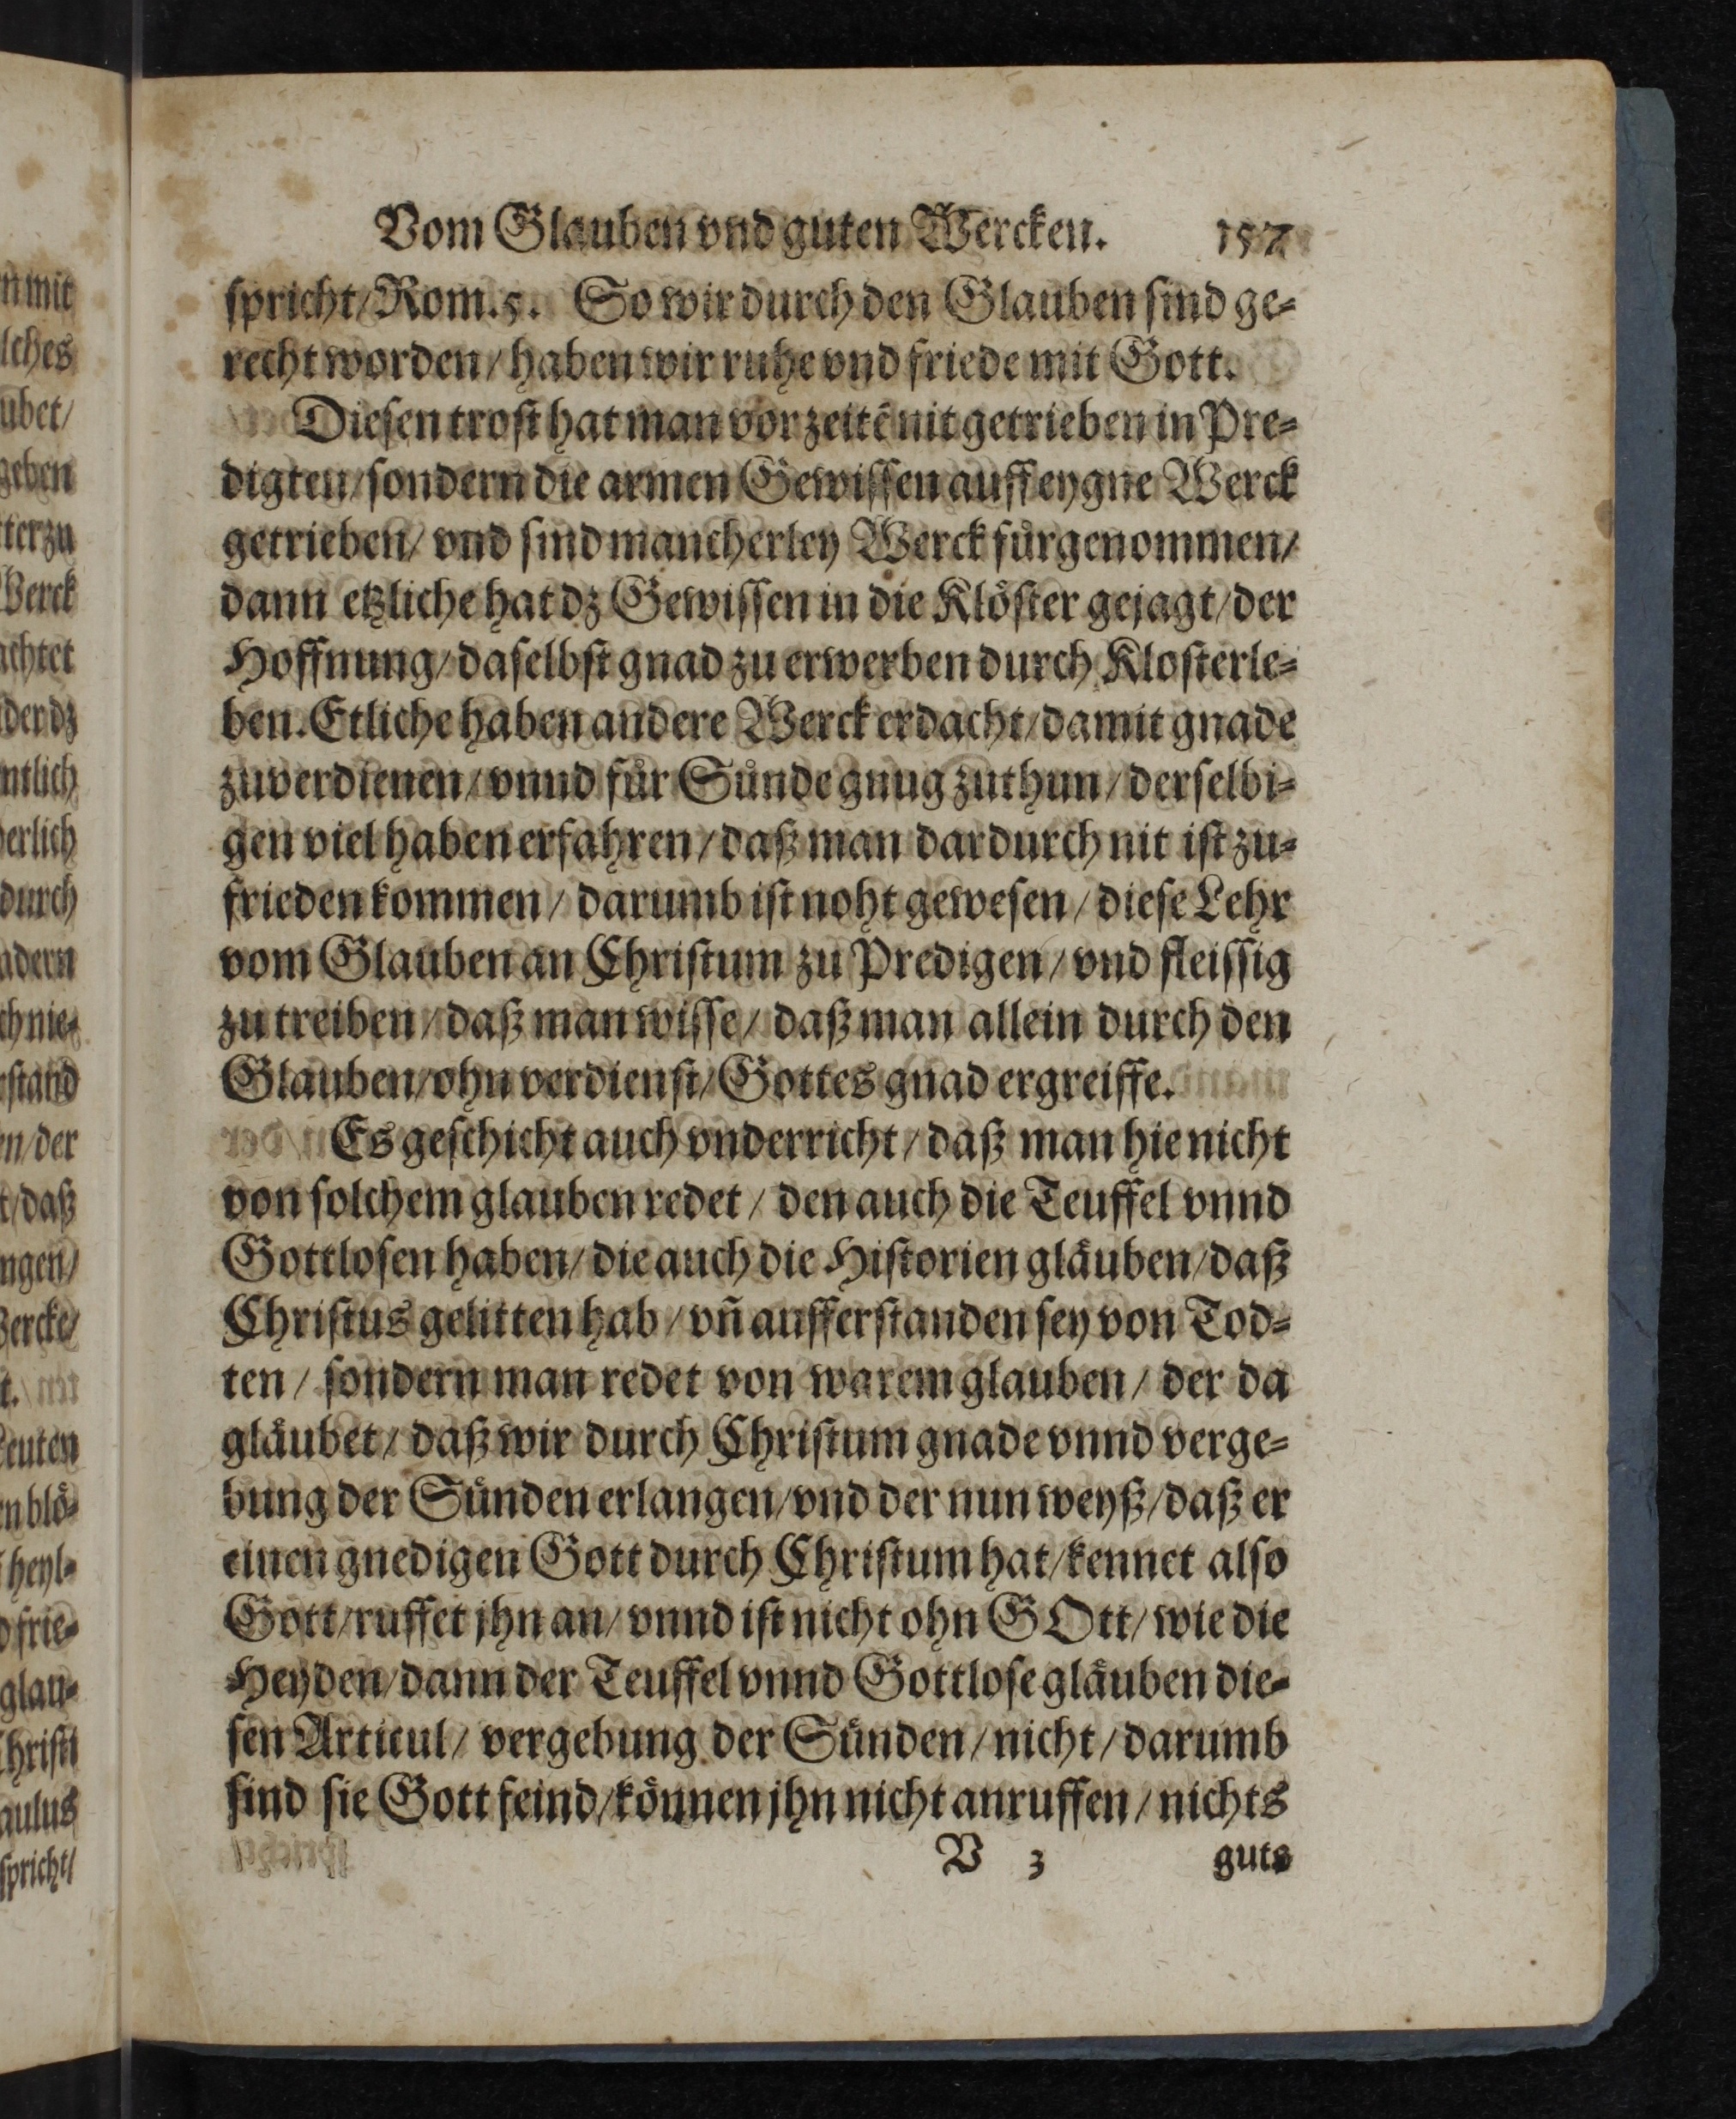 Vom Glauben vnd guten Wercken. 157
spricht/ Rom. 5. So wir durch den Glauben sind ge-
recht worden/ haben wir ruhe vnd friede mit Gott.
Diesen trost hat man vor zeitē nit getrieben in Pre-
digten/ sondern die armen Gewissen auff eygne Werck
getrieben/ vnd sind mancherley Werck fürgenommen/
dann etzliche hat dz Gewissen in die Klöster gejagt/ der
Hoffnung/ daselbst gnad zu erwerben durch Klosterle-
ben. Etliche haben andere Werck erdacht/ damit gnade
zuverdienen/ vnnd für Sünde gnug zuthun/ derselbi-
gen viel haben erfahren/ daß man dardurch nit ist zu-
frieden kommen/ darumb ist noht gewesen/ diese Lehr
vom Glauben an Christum zu Predigen/ vnd fleissig
zu treiben/ daß man wisse/ daß man allein durch den
Glauben/ ohn verdienst/ Gottes gnad ergreiffe.
Es geschicht auch vnderricht/ daß man hie nicht
von solchem glauben redet/ den auch die Teuffel vnnd
Gottlosen haben/ die auch die Historien gläuben/ daß
Christus gelitten hab/ vñ aufferstanden sey von Tod-
ten/ sondern man redet von warem glauben/ der da
gläubet/ daß wir durch Christum gnade vnnd verge-
bung der Sünden erlangen/ vnd der nun weyß/ daß er
einen gnedigen Gott durch Christum hat/ kennet also
Gott/ ruffet jhn an/ vnnd ist nicht ohn GOtt/ wie die
Heyden/ dann der Teuffel vnnd Gottlose gläuben die-
sen Articul/ vergebung der Sünden/ nicht/ darumb
sind sie Gott feind/ können jhn nicht anruffen/ nichts
V 3 guts